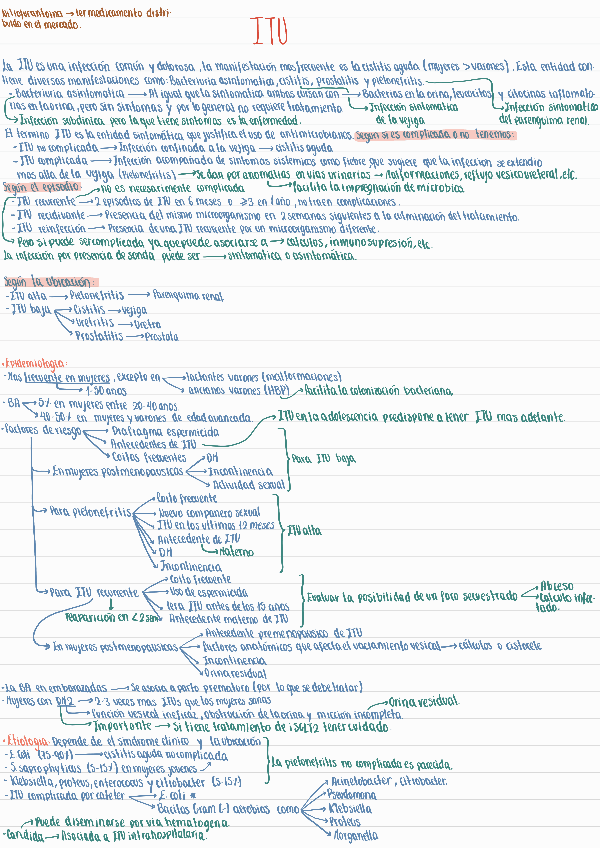 Nitrofurantoina → 1er medicamento distri-
buido en el mercado.
ITU
La ITU es una infección común y dolorosa, la manifestación mas frecuente es la cistitis aguda (mujeres > varones). Esta entidad con-
tiene diversas manifestaciones como: Bacteriuria asintomatica, cistitis, prostatitis y pielonefritis.
- Bacteriuria asintomatica → Al igual que la sintomatica ambas cursan con → Bacterias en la orina, leucocitos y citocinas inflamato-
rias en la orina, pero sin sintomas y por lo general no requiere tratamiento
→ Infección sintomatica de la vejiga
→ Infección sintomatica del parenquima renal.
→ Infección subclinica, pero la que tiene sintomas es la enfermedad.
El termino ITU es la entidad sintomática que justifica el uso de antimicrobianos. Según si es complicada o no tenemos:
- ITU no complicada → Infección confinada a la vejiga → cistitis aguda
- ITU complicada → Infección acompañada de sintomas sistemicos como fiebre que sugiere que la infección se extendio
mas alla de la vejiga (Pielonefritis) → Se dan por anomalias en vias urinarias → Malformaciones, reflujo vesicoureteral, etc.
Según el episodio:
→ No es necesariamente complicada
→ facilita la impregnación de microbios.
- ITU recurrente → 2 episodios de ITU en 6 meses o ≥3 en 1 año, no traen complicaciones.
- ITU recidivante → Presencia del mismo microorganismo en 2 semanas siguientes a la culminación del tratamiento.
- ITU reinfección → Presencia de una ITU recurrente por un microorganismo diferente.
→ Pero si puede ser complicada, ya que puede asociarse a → cálculos, inmunosupresión, etc.
La infección por presencia de sonda puede ser → sintomatica o asintomática.
Según la ubicación:
- ITU alta → Pielonefritis → Parenquima renal
- ITU baja → Cistitis → Vejiga
→ Uretritis → Uretra
→ Prostatitis → Prostata
• Epidemiologia:
- Mas frecuente en mujeres, excepto en → lactantes varones (malformaciones)
→ 1-50 años
→ ancianos varones (HBP) → facilita la colonización bacteriana.
- BA → 5% en mujeres entre 20-40 años
→ 40-50% en mujeres y varones de edad avanzada.
→ ITU en la adolescencia predispone a tener ITU mas adelante.
- Factores de riesgo → Diafragma espermicida
→ Antecedentes de ITU
→ Coitos frecuentes
→ En mujeres postmenopausicas → DM
→ Incontinencia
→ Actividad sexual
Para ITU baja
→ Para pielonefritis → Coito frecuente
→ Nuevo compañero sexual
→ ITU en los ultimos 12 meses
→ Antecedente de ITU
→ Materno
→ DM
→ Incontinencia
ITU alta
→ Para ITU recurrente → Coito frecuente
→ Uso de espermicida
→ 1era ITU antes de los 15 años
→ Antecedente materno de ITU
Reaparición en <2 sem
Evaluar la posibilidad de un foco secuestrado → Absceso
→ Calculo infec-
tado.
→ En mujeres postmenopausicas → Antecedente premenopausico de ITU
→ factores anatómicos que afecta el vaciamiento vesical → cálculos o cistocele
→ Incontinencia
→ Orina residual
- La BA en embarazadas → Se asocia a parto prematuro (por lo que se debe tratar)
- Mujeres con DM2 → 2-3 veces mas ITUs que las mujeres sanas
→ Orina residual
→ Función vesical ineficaz, obstrucción de la orina y micción incompleta.
→ Importante → Si tiene tratamiento de iSGLT2 tener cuidado
• Etiologia: Depende el sindrome clinico y la ubicación
- E. coli (75-90%) → cistitis aguda no complicada
- S. saprophyticus (5-15%) en mujeres jovenes
- Klebsiella, proteus, enterococus y citrobacter (5-15%)
La pielonefritis no complicada es parecida.
- ITU complicada por cateter → E. coli *
→ Bacilos Gram (-) aerobios como → Acinetobacter, citrobacter.
→ Pseudomona
→ Klebsiella
→ Proteus
→ Morganella
→ Puede diseminarse por via hematogena.
- Candida → Asociada a ITU intrahospitalaria.